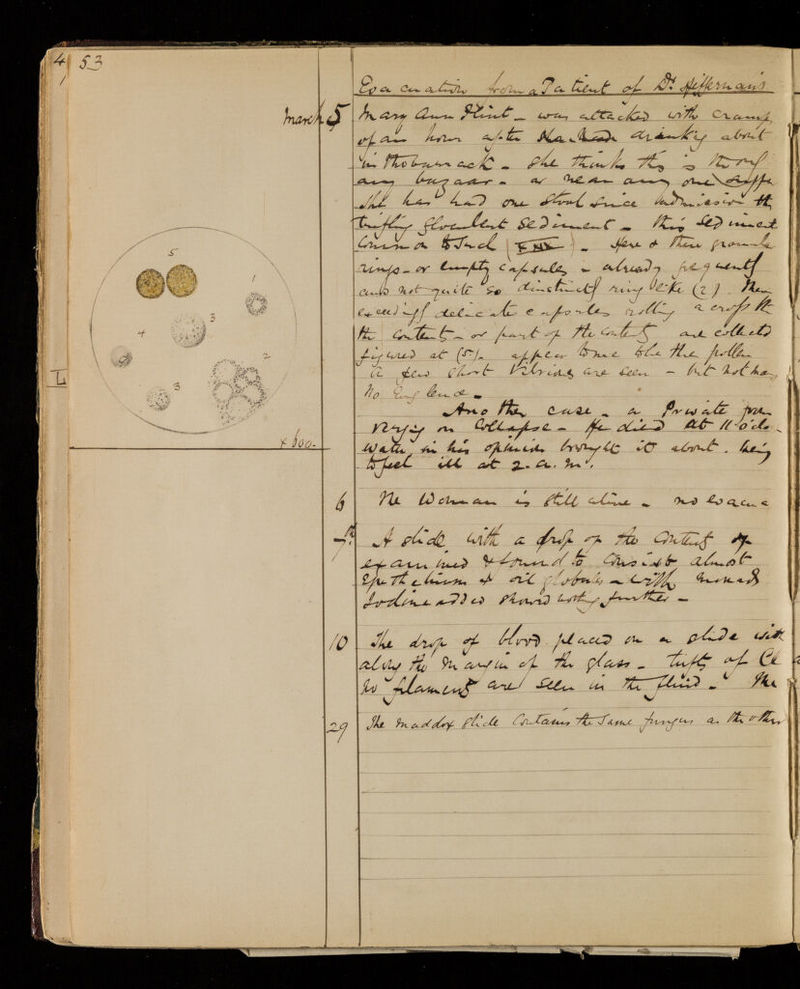 4 53
Evacuation from a Patient of Dr. Heffernan's
March 5 Mary Ann Flint - was attacked with cramp
of an hour after drinking about
in the barrack - She thinks this is
any bazaar - or near any one
She has had one stool since admission
trifling flocculent sediment - this sediment
common - Here & there
rings - or empty capsules - already
and not quite so distinctly ring like (2)
exceedingly delicate capsules rolling across th
the contents - or part of the contents are collected
figured at (5). appear to me to be the pollen
A few short Vibriones are seen - but not many
No Euglenae -
Another case - a Private
verging on Collapse - He died at 11 o'clo
water in his opinion brought it about. being
to feel ill at 2. a. m.
6 The Woman is still alive - no evacua
7th A slide with a drop of the contents of
examined & found to consist almost
Epithelium & oil globules - with monads
Iodine added showed nothing further -
10 The drop of blood placed on a slide with
along the margin of the glass - tufts of
No filaments are seen in the fluid - The
29 The Maddox slide contains the same fungus as the other
5
1
3
4
2
3
L
x 600.